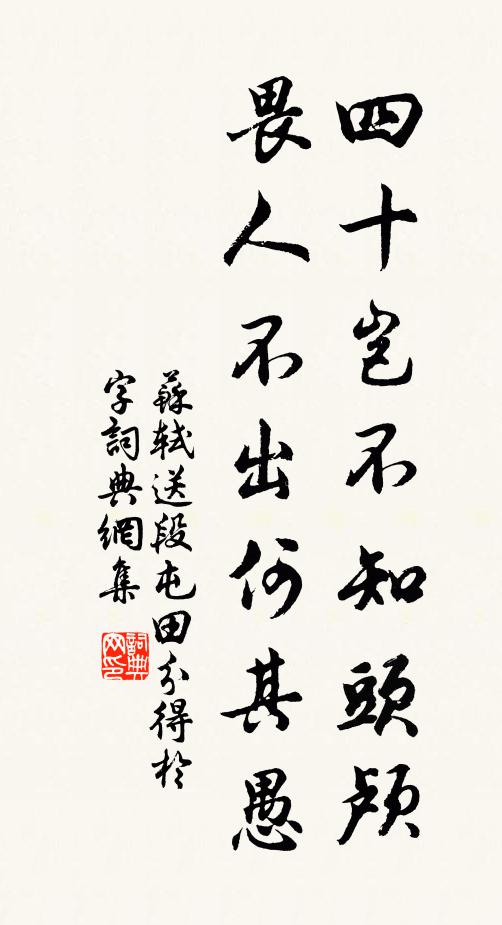 四十豈不知頭顱
畏人不出何其愚
蘇軾送段屯田分得於
字詞典網集
詞典网印